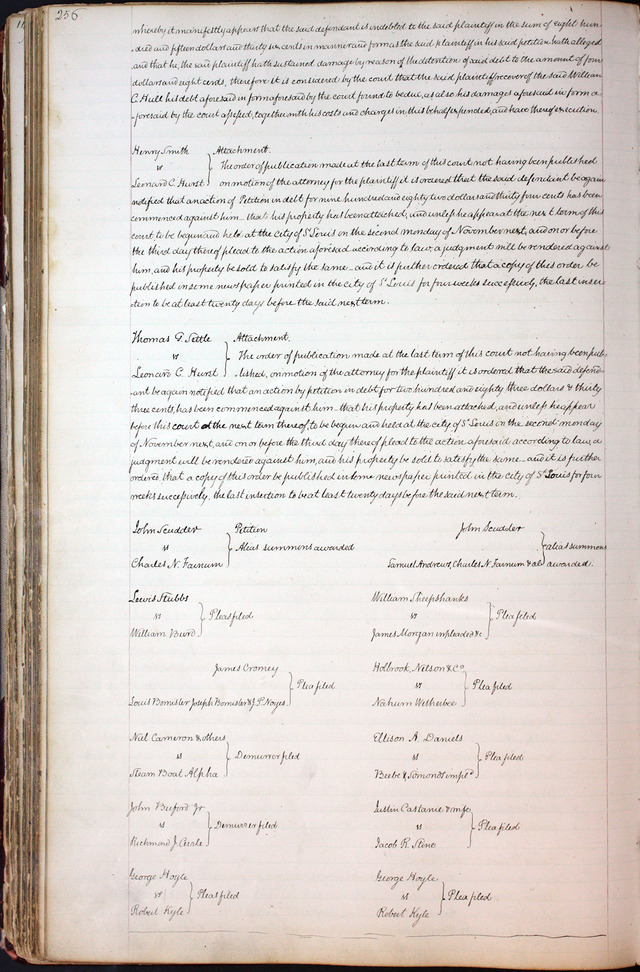 256
whereby it manifestly appears that the said defendant is indebted to the said plaintiff in the sum of eight hun-
dred and fifteen dollars and thirty six cents in manner and form as the said plaintiff in his said petition hath alleged
and that he, the said plaintiff hath sustained damage by reason of the detention of said debt to the amount of four
dollars and eight cents, therefore it is considered by the court that the said plaintiff recover of the said William
C. Hull his debt aforesaid in form aforesaid by the court found to be due, as also his damages aforesaid in form a-
foresaid by the court assessed, together with his costs and charges in this behalf expended, and have thereof execution.
Henry Smith
vs
Leonard C. Hurst
Attachment.
The order of publication made at the last term of this court not having been published
on motion of the attorney for the plaintiff it is ordered that the said defendant be again
notified that an action of Petition in debt for nine hundred and eighty two dollars and thirty four cents has been
commenced against him – that his property has been attached, and unless he appear at the next term of this
court to be begun and held at the city of St Louis on the second monday of November next, and on or before
the third day thereof plead to the action aforesaid according to law, a judgment will be rendered against
him, and his property be sold to satisfy the same – and it is further ordered that a copy of this order be
published in some newspaper printed in the city of St Louis for four weeks successively, the last inser-
tion to be at least twenty days before the said next term.
Thomas T. Settle
vs
Leonard C Hurst
Attachment.
The order of publication made at the last term of this court not having been pub-
lished, on motion of the attorney for the plaintiff it is ordered that the said defend-
ant be again notified that an action by petition in debt for two hundred and eighty three dollars & thirty
three cents, has been commenced against him – that his property has been attached, and unless he appear
before this court at the next term thereof, to be begun and held at the city of St Louis on the second monday
of November next, and on or before the third day thereof plead to the action aforesaid according to law, a
judgment will be rendered against him, and his property be sold to satisfy the same – and it is further
ordered that a copy of this order be published in some newspaper printed in the city of St Louis for four
weeks successively, the last insertion to be at least twenty days before the said next term.
John Scudder
vs
Charles N. Farnum
Petition
Alias summons awarded
John Scudder
Samuel Andrews, Charles N. Farnum & al
alias summons
awarded.
Lewis Stubbs
vs
William Burd
Pleas filed
William Sheepshanks
vs
James Morgan impleaded &c
Plea filed
James Cromey
Louis Bomister Joseph Bomister & J. P. Noyes
Plea filed
Holbrook, Nelson & Co
vs
Nahum Wetherbee
Plea filed
Niel Cameron & others
vs
Steam Boat Alpha
Demurrer filed
Ellison A. Daniels
vs
Beebe & Simonds impld
Plea filed
John Buford Jr
vs
Richmond J.
Demurrer filed
Justin Castanie & wife
vs
Jacob R. Stine
Plea filed
George Hoyle
vs
Robert Kyle
Pleas filed
George Hoyle
vs
Robert Kyle
Plea filed.